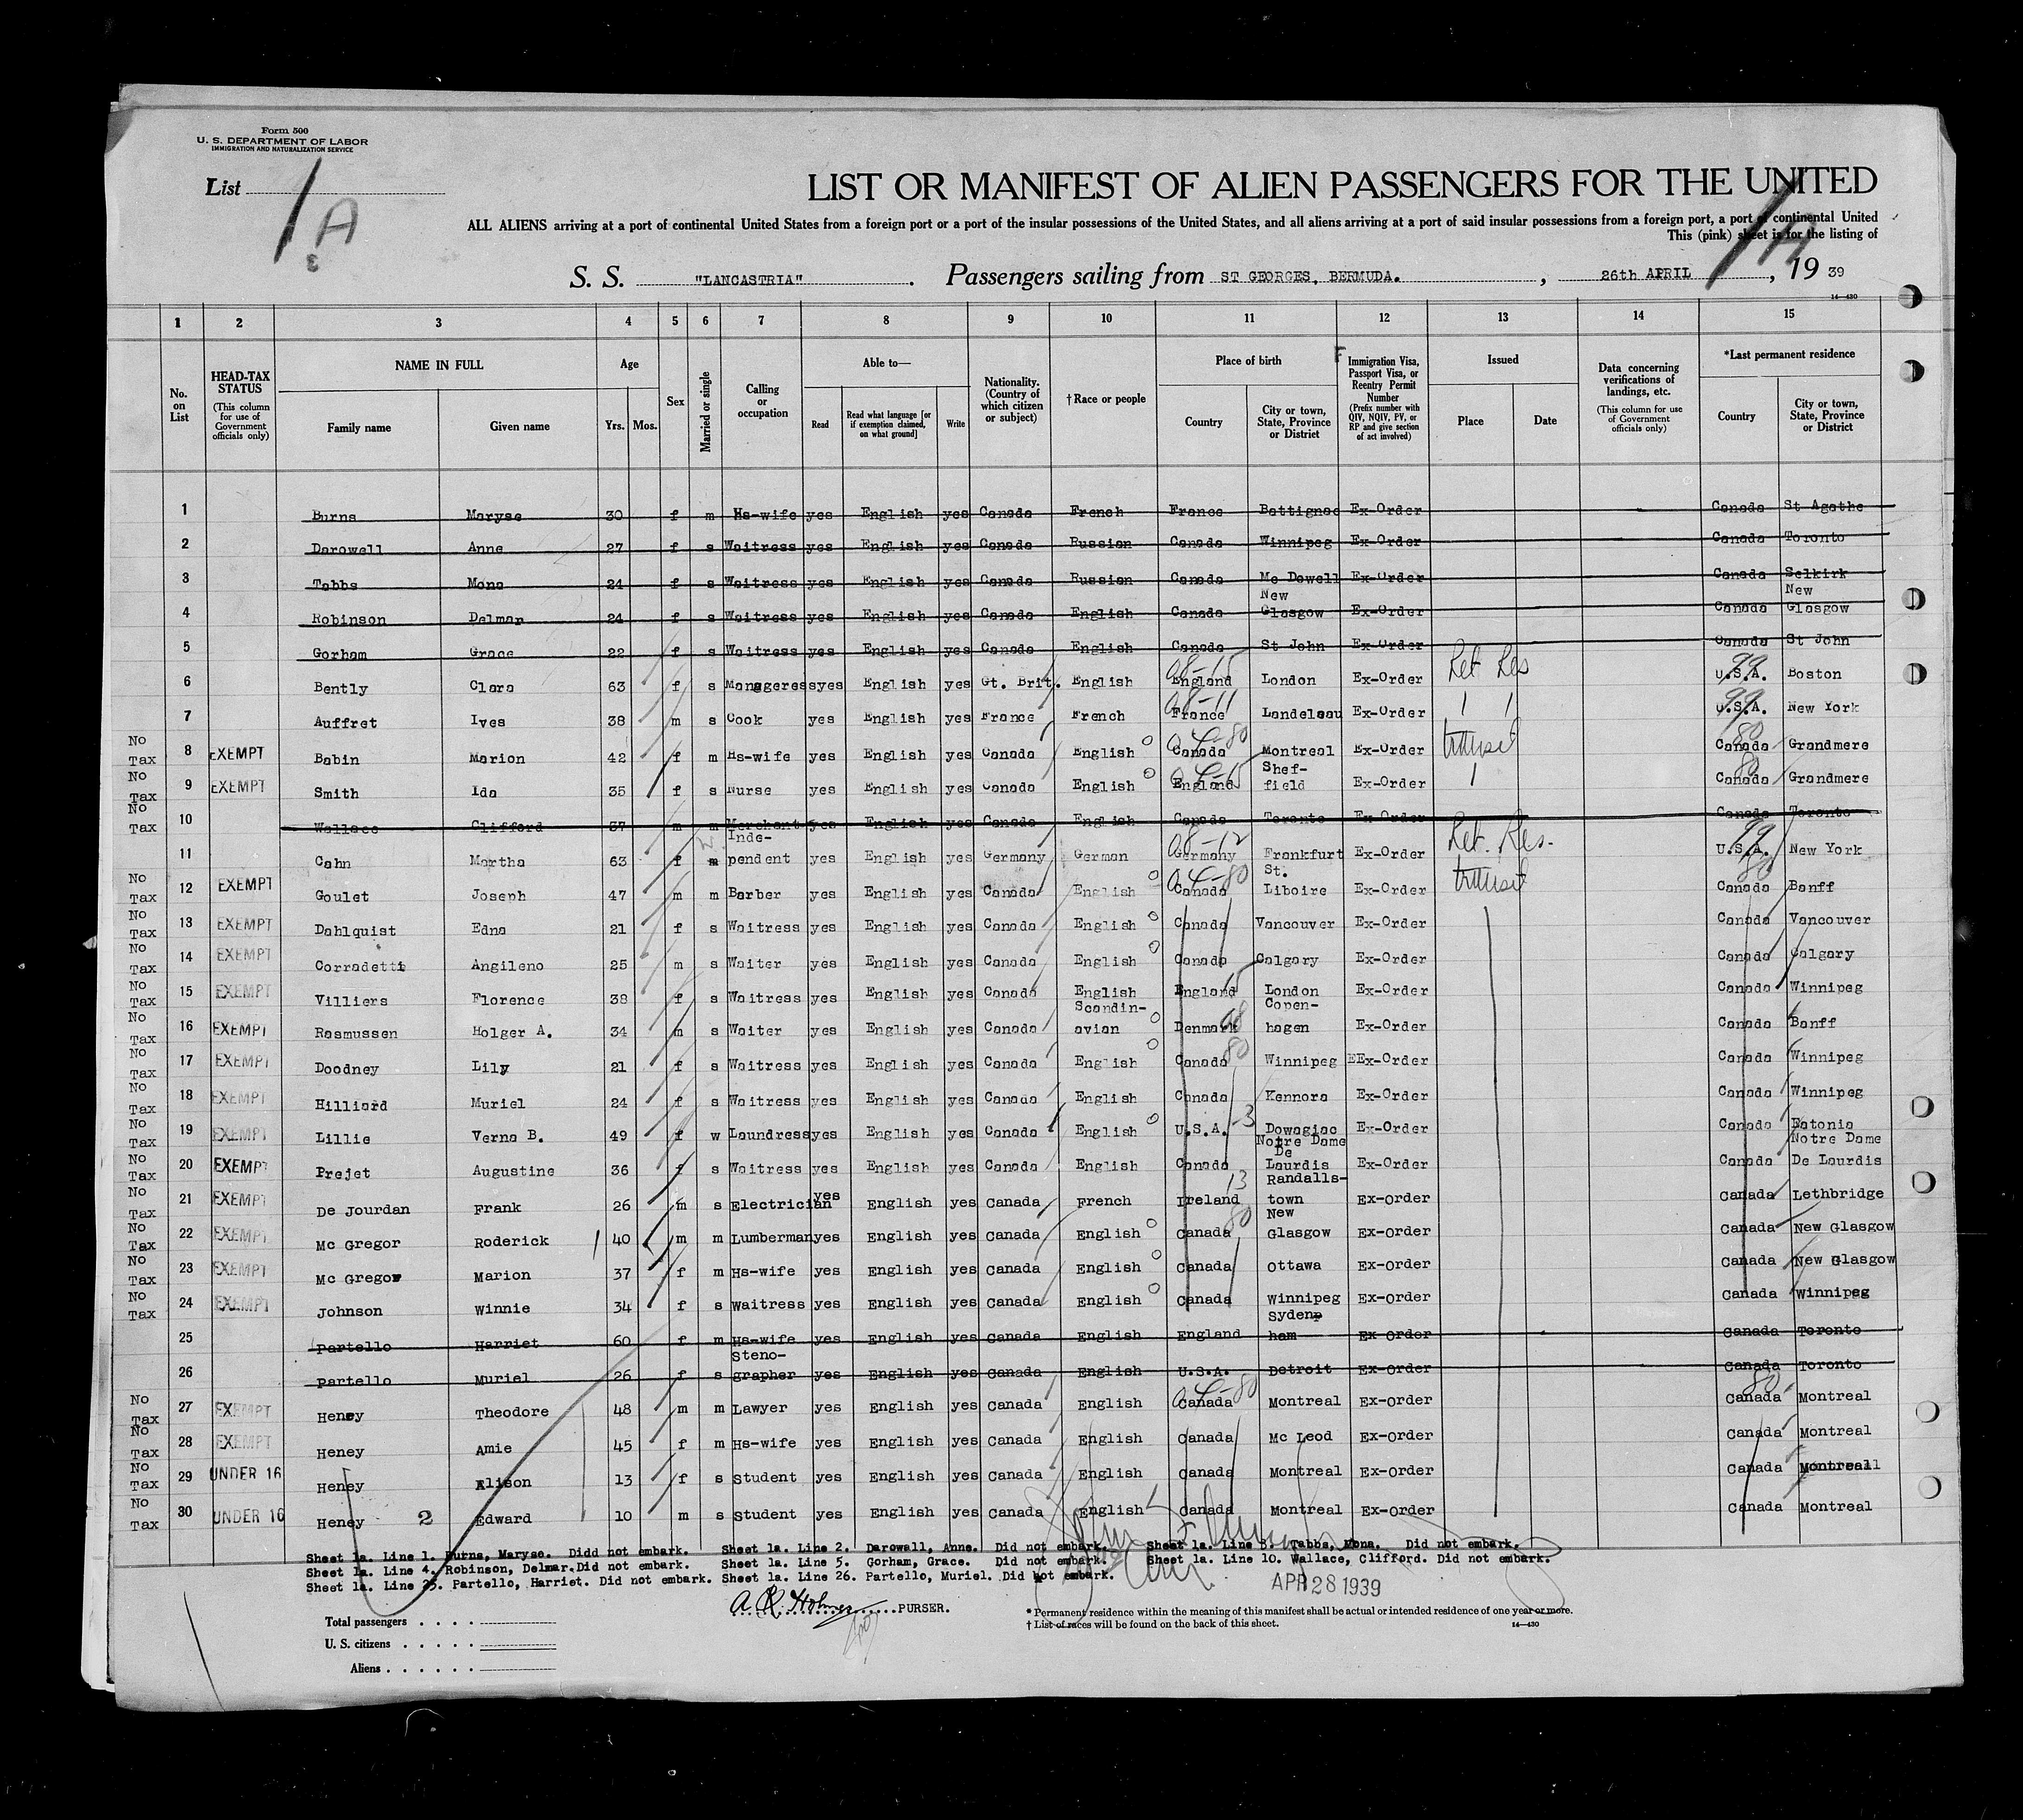 Form 500
U. S. DEPARTMENT OF LABOR
IMMIGRATION AND NATURALIZATION SERVICE
List 1 A
LIST OR MANIFEST OF ALIEN PASSENGERS FOR THE UNITED
ALL ALIENS arriving at a port of continental United States from a foreign port or a port of the insular possessions of the United States, and all aliens arriving at a port of said insular possessions from a foreign port, a port of continental United
This (pink) sheet is for the listing of
S. S. "LANCASTRIA". Passengers sailing from ST GEORGES, BERMUDA. , 26th APRIL , 19 39
14—430
1 2 3 4 5 6 7 8 9 10 11 12 13 14 15
No. on List
HEAD-TAX STATUS (This column for use of Government officials only)
NAME IN FULL Family name Given name
Age Yrs. Mos.
Sex
Married or single
Calling or occupation
Able to— Read Read what language [or if exemption claimed, on what ground] Write
Nationality. (Country of which citizen or subject)
† Race or people
Place of birth Country City or town, State, Province or District
Immigration Visa, Passport Visa, or Reentry Permit Number (Prefix number with QIV, NQIV, PV, or RP and give section of act involved)
Issued Place Date
Data concerning verifications of landings, etc. (This column for use of Government officials only)
*Last permanent residence Country City or town, State, Province or District
1 Burns Maryse 30 f m Hs-wife yes English yes Canada French France Battignac Ex-Order Canada St Agathe
2 Darowell Anne 27 f s Waitress yes English yes Canada Russian Canada Winnipeg Ex-Order Canada Toronto
3 Tabbs Mona 24 f s Waitress yes English yes Canada Russian Canada Mc Dowell Ex-Order Canada Selkirk
4 Robinson Delmar 24 f s Waitress yes English yes Canada English Canada New Glasgow Ex-Order Canada New Glasgow
5 Gorham Grace 22 f s Waitress yes English yes Canada English Canada St John Ex-Order Canada St John
6 Bently Clara 63 f s Manageress yes English yes Gt. Brit. English England London Ex-Order Ret Res U.S.A. Boston
7 Auffret Ives 38 m s Cook yes English yes France French France Landeleau Ex-Order U.S.A. New York
No Tax 8 EXEMPT Babin Marion 42 f m Hs-wife yes English yes Canada English Canada Montreal Ex-Order transit Canada Grandmere
No Tax 9 EXEMPT Smith Ida 35 f s Nurse yes English yes Canada English England Shef-field Ex-Order Canada Grandmere
No Tax 10 Wallace Clifford 37 m m Merchant yes English yes Canada English Canada Toronto Ex-Order Canada Toronto
11 Cahn Martha 63 f m Inde-pendent yes English yes Germany German Germany Frankfurt Ex-Order Ret. Res. U.S.A. New York
No Tax 12 EXEMPT Goulet Joseph 47 m m Barber yes English yes Canada English Canada St. Liboire Ex-Order transit Canada Banff
No Tax 13 EXEMPT Dahlquist Edna 21 f s Waitress yes English yes Canada English Canada Vancouver Ex-Order Canada Vancouver
No Tax 14 EXEMPT Corradetti Angileno 25 m s Waiter yes English yes Canada English Canada Calgary Ex-Order Canada Calgary
No Tax 15 EXEMPT Villiers Florence 38 f s Waitress yes English yes Canada English England London Ex-Order Canada Winnipeg
No Tax 16 EXEMPT Rasmussen Holger A. 34 m s Waiter yes English yes Canada Scandin-avian Denmark Copen-hagen Ex-Order Canada Banff
No Tax 17 EXEMPT Doodney Lily 21 f s Waitress yes English yes Canada English Canada Winnipeg EEx-Order Canada Winnipeg
No Tax 18 EXEMPT Hilliard Muriel 24 f s Waitress yes English yes Canada English Canada Kennora Ex-Order Canada Winnipeg
No Tax 19 EXEMPT Lillie Verna B. 49 f w Laundress yes English yes Canada English U.S.A. Dowagiac Ex-Order Canada Eatonia
No Tax 20 EXEMPT Prejet Augustine 36 f s Waitress yes English yes Canada English Canada Notre Dame De Lourdis Ex-Order Canada Notre Dame De Lourdis
No Tax 21 EXEMPT De Jourdan Frank 26 m s Electrician yes English yes Canada French Ireland Randalls-town Ex-Order Canada Lethbridge
No Tax 22 EXEMPT Mc Gregor Roderick 40 m m Lumberman yes English yes Canada English Canada New Glasgow Ex-Order Canada New Glasgow
No Tax 23 EXEMPT Mc Gregor Marion 37 f m Hs-wife yes English yes Canada English Canada Ottawa Ex-Order Canada New Glasgow
No Tax 24 EXEMPT Johnson Winnie 34 f s Waitress yes English yes Canada English Canada Winnipeg Ex-Order Canada Winnipeg
25 Partello Harriet 60 f m Hs-wife yes English yes Canada English England Syden-ham Ex-Order Canada Toronto
26 Partello Muriel 26 f s Steno-grapher yes English yes Canada English U.S.A. Detroit Ex-Order Canada Toronto
No Tax 27 EXEMPT Heney Theodore 48 m m Lawyer yes English yes Canada English Canada Montreal Ex-Order Canada Montreal
No Tax 28 EXEMPT Heney Amie 45 f m Hs-wife yes English yes Canada English Canada Mc Leod Ex-Order Canada Montreal
No Tax 29 UNDER 16 Heney Alison 13 f s Student yes English yes Canada English Canada Montreal Ex-Order Canada Montreal
No Tax 30 UNDER 16 Heney 2 Edward 10 m s Student yes English yes Canada English Canada Montreal Ex-Order Canada Montreal
Sheet 1a. Line 1. Burns, Maryse. Didd not embark. Sheet 1a. Line 2. Darowall, Anne. Did not embark. Sheet 1a. Line 3. Tabbs, Mona. Did not embark.
Sheet 1a. Line 4. Robinson, Delmar. Did not embark. Sheet 1a. Line 5. Gorham, Grace. Did not embark. Sheet 1a. Line 10. Wallace, Clifford. Did not embark.
Sheet 1a. Line 25. Partello, Harriet. Did not embark. Sheet 1a. Line 26. Partello, Muriel. Did not embark.
APR 28 1939
A. R. Holmes PURSER.
Total passengers
U. S. citizens
Aliens
* Permanent residence within the meaning of this manifest shall be actual or intended residence of one year or more.
† List of races will be found on the back of this sheet.
14—430